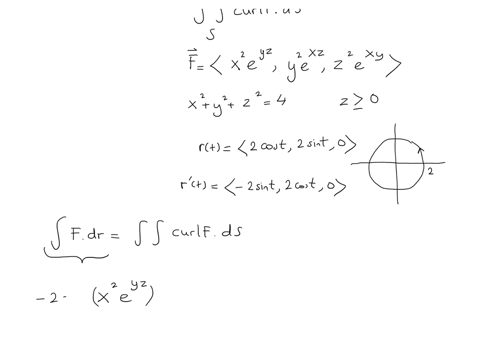 ∫∫ curl F. ds
S
F⃗ = ⟨ x²e^{yz}, y²e^{xz}, z²e^{xy} ⟩
x²+y²+z²=4 z ≥ 0
r(t) = ⟨ 2cost, 2sint, 0 ⟩
2
r'(t) = ⟨ -2sint, 2cost, 0 ⟩
∫ F.dr = ∫∫ curlF. ds
-2· (x²e^{yz})